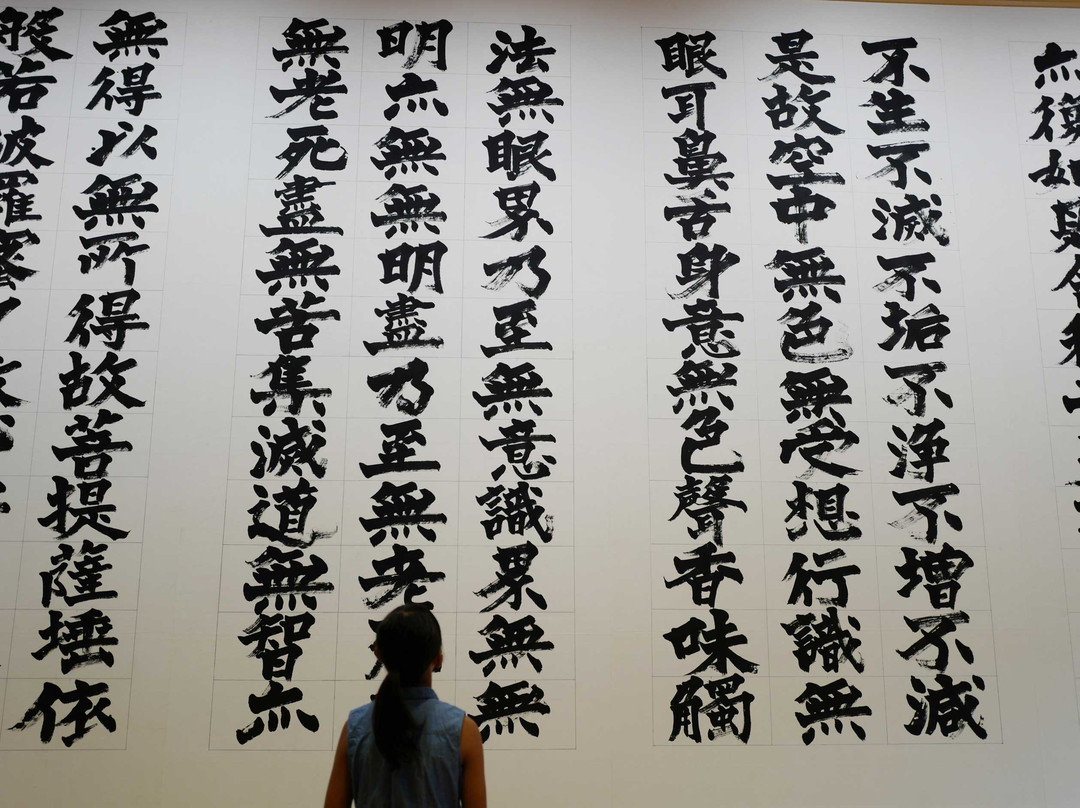 亦復如是舍利子
不生不滅不垢不浄不增不減
是故空中無色無受想行識無
眼耳鼻舌身意無色聲香味觸
法無眼界乃至無意識界無無
明亦無無明盡乃至無老
無老死盡無苦集滅道無智亦
無得以無所得故菩提薩埵依
般若波羅蜜多故